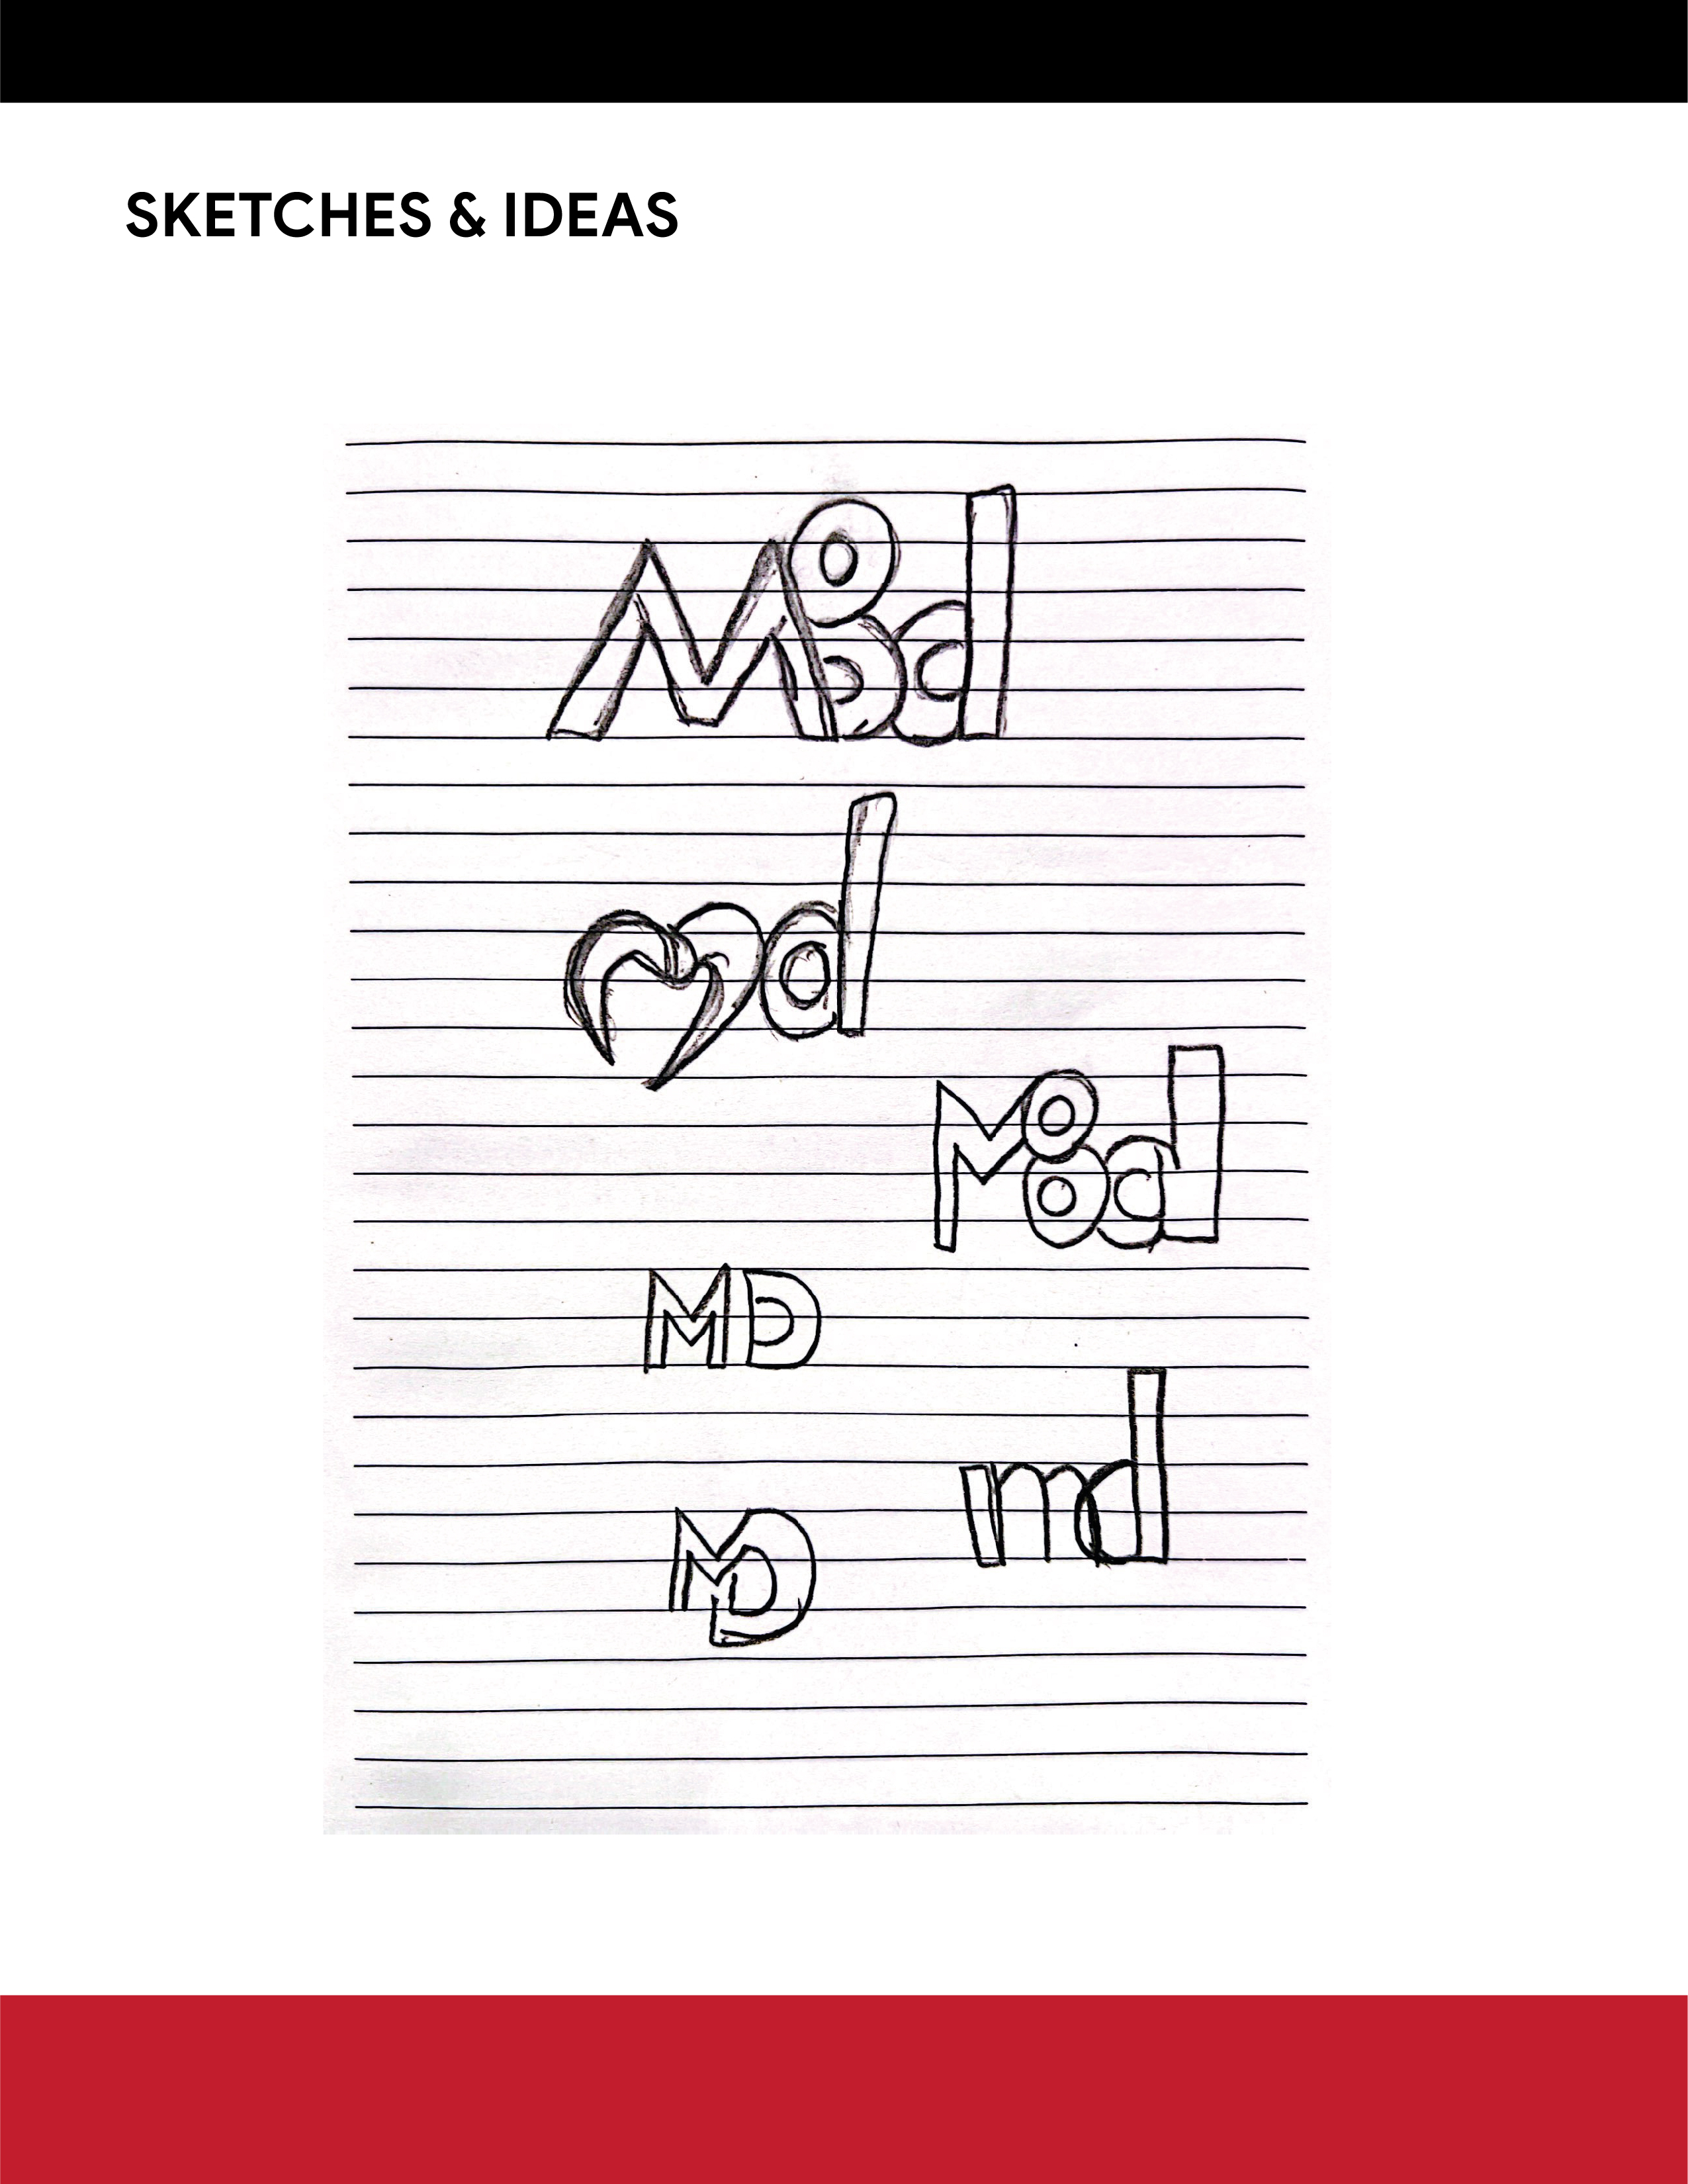 SKETCHES & IDEAS
M8d
md
M8d
MD
md
MD